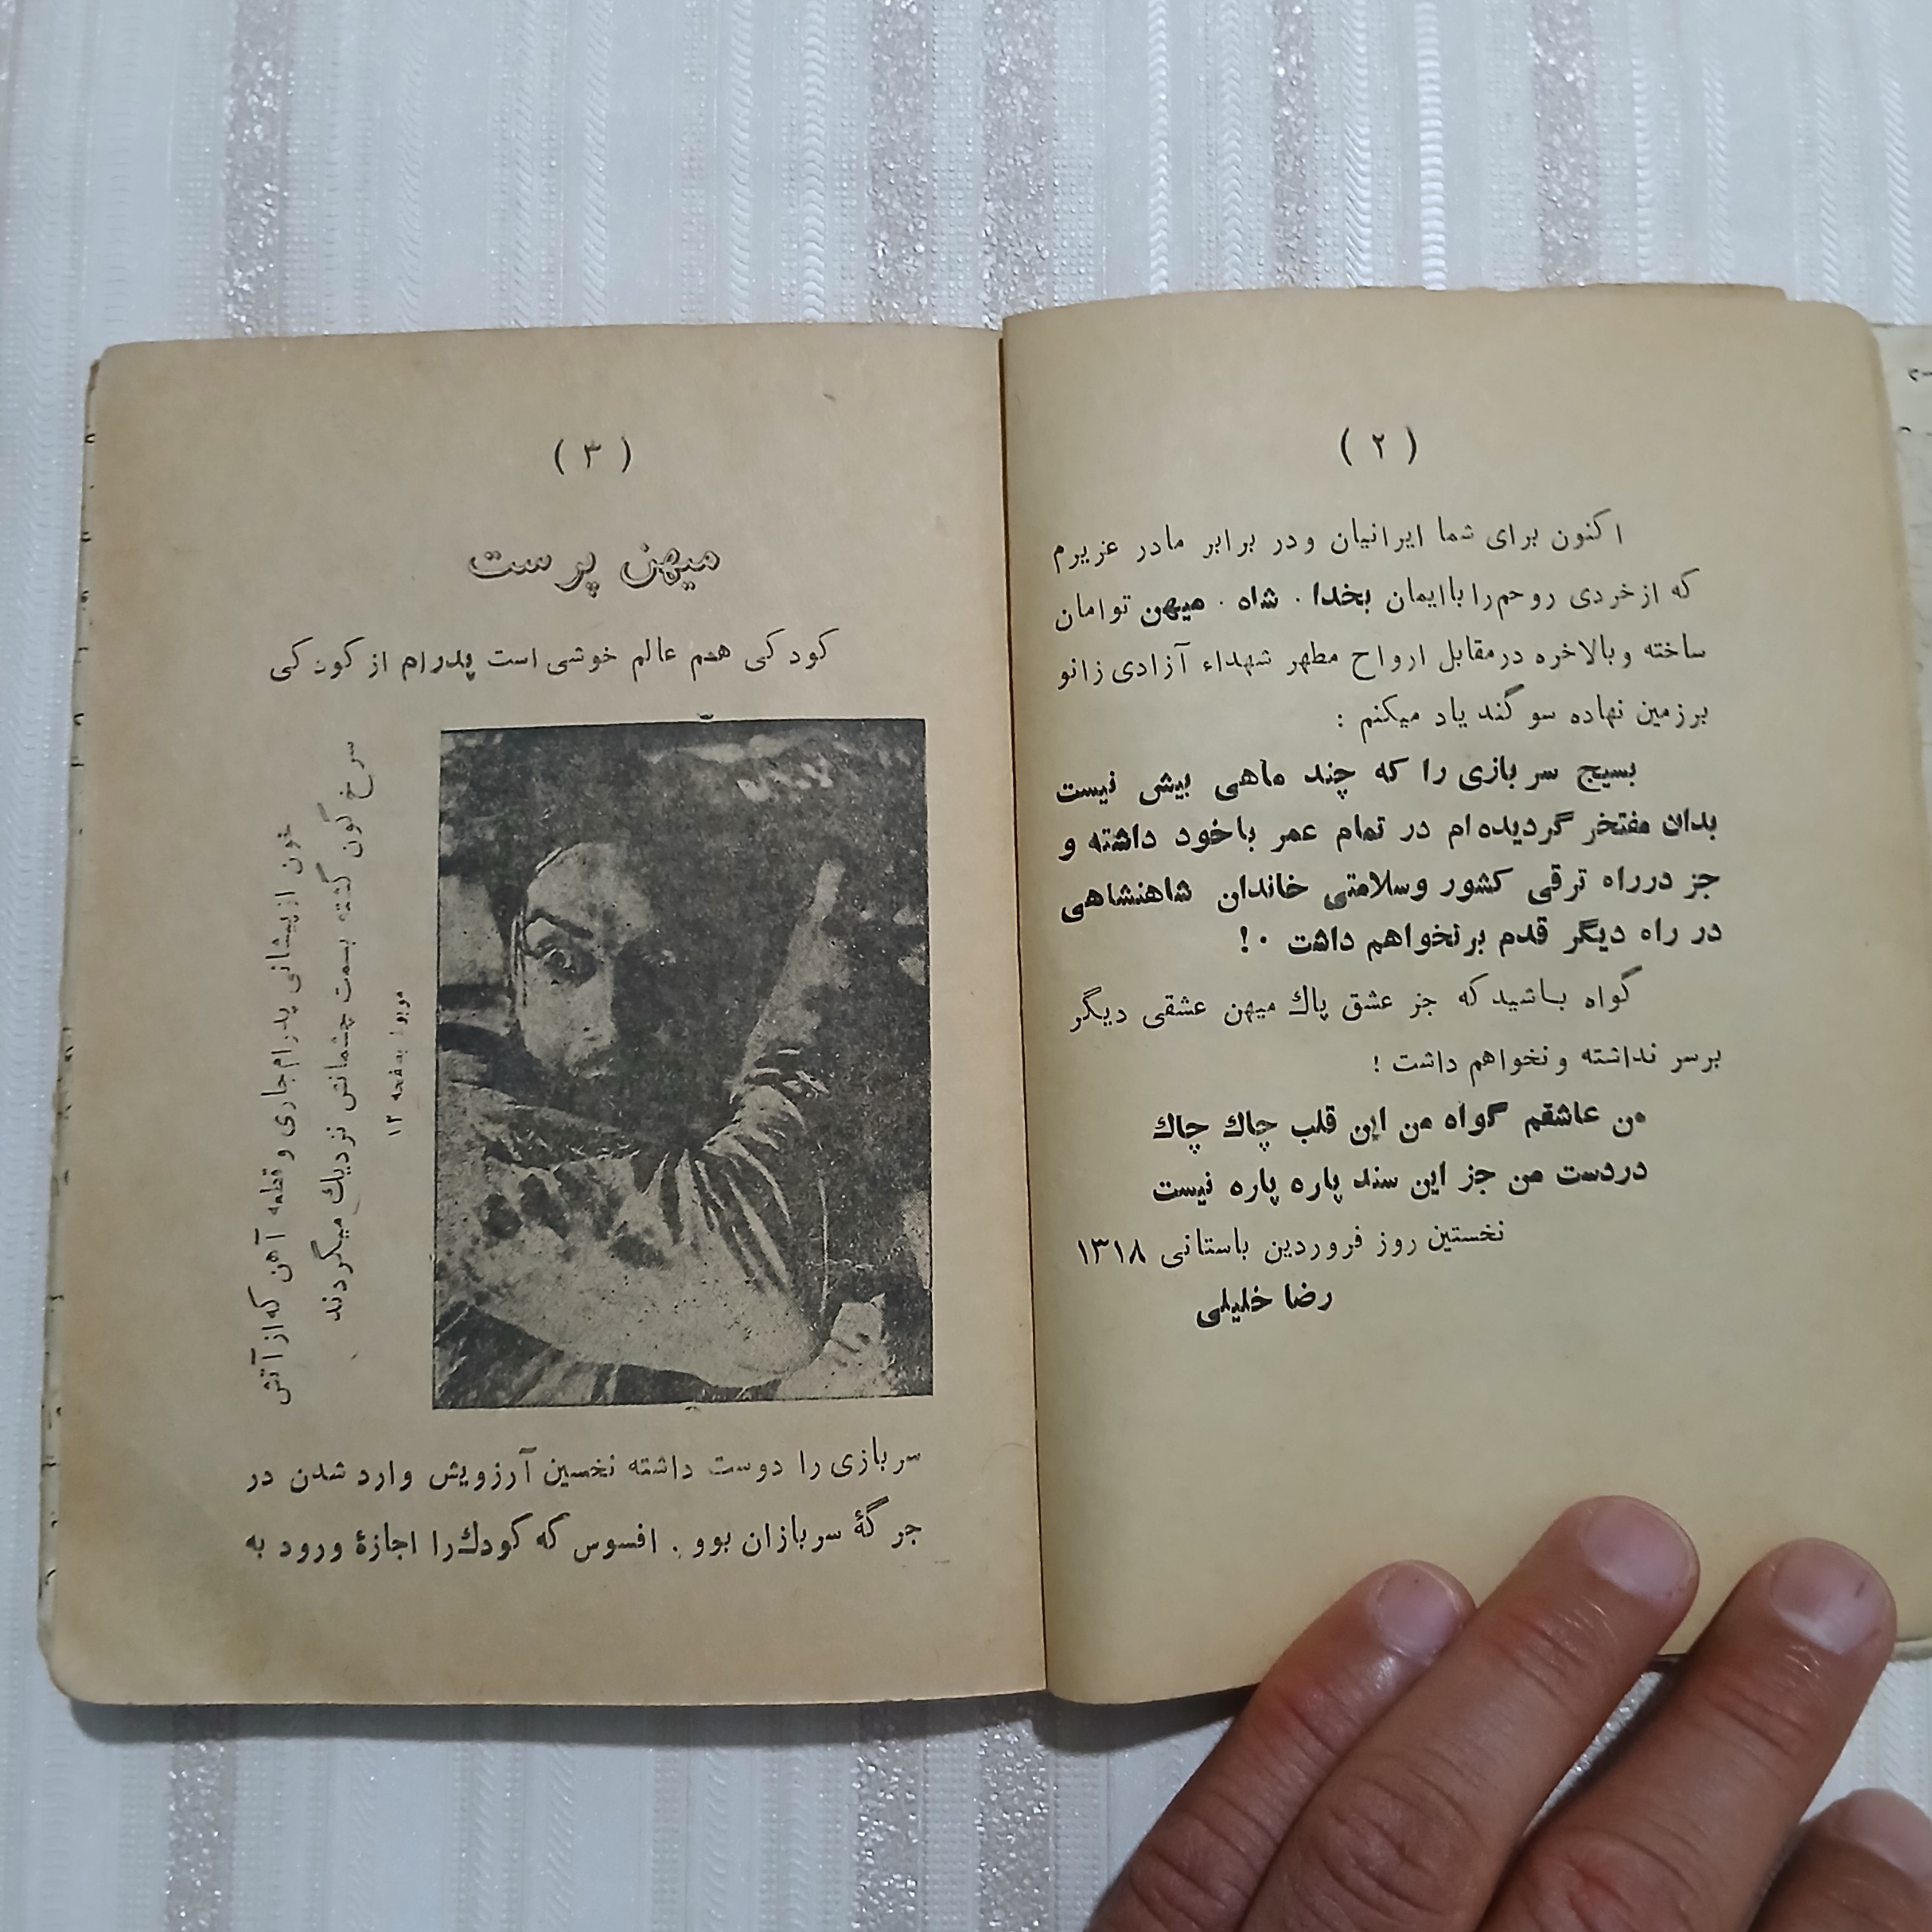 ( ۲ )
اکنون برای شما ایرانیان ودر برابر مادر عزیزم
که ازخردی روحمرا باایمان بخدا . شاه . میهن توامان
ساخته وبالاخره درمقابل ارواح مطهر شهداء آزادی زانو
برزمین نهاده سوگند یاد میکنم :
بسیج سربازی را که چند ماهی بیش نیست
بدان مفتخر گردیده‌ام در تمام عمر باخود داشته و
جز درراه ترقی کشور وسلامتی خاندان شاهنشاهی
در راه دیگر قدم برنخواهم داشت ۰!
گواه باشید که جز عشق پاك میهن عشقی دیگر
برسر نداشته ونخواهم داشت !
من عاشقم گواه من این قلب چاك چاك
دردست من جز این سند پاره پاره نیست
نخستین روز فروردین باستانی ۱۳۱۸
رضا خلیلی
( ۳ )
میهن پرست
کودکی هم عالم خوشی است پدرام از کودکی
خون ازپیشانی پدرام‌جاری وقطعه آهن که‌ازآتش
سرخ گون گشته بسمت چشمانش نزدیك میگردند
مربوط بصفحه ۱۲
سربازی را دوست داشته نخسین آرزویش وارد شدن در
جرگهٔ سربازان بوو . افسوس که کودك‌را اجازهٔ ورود به